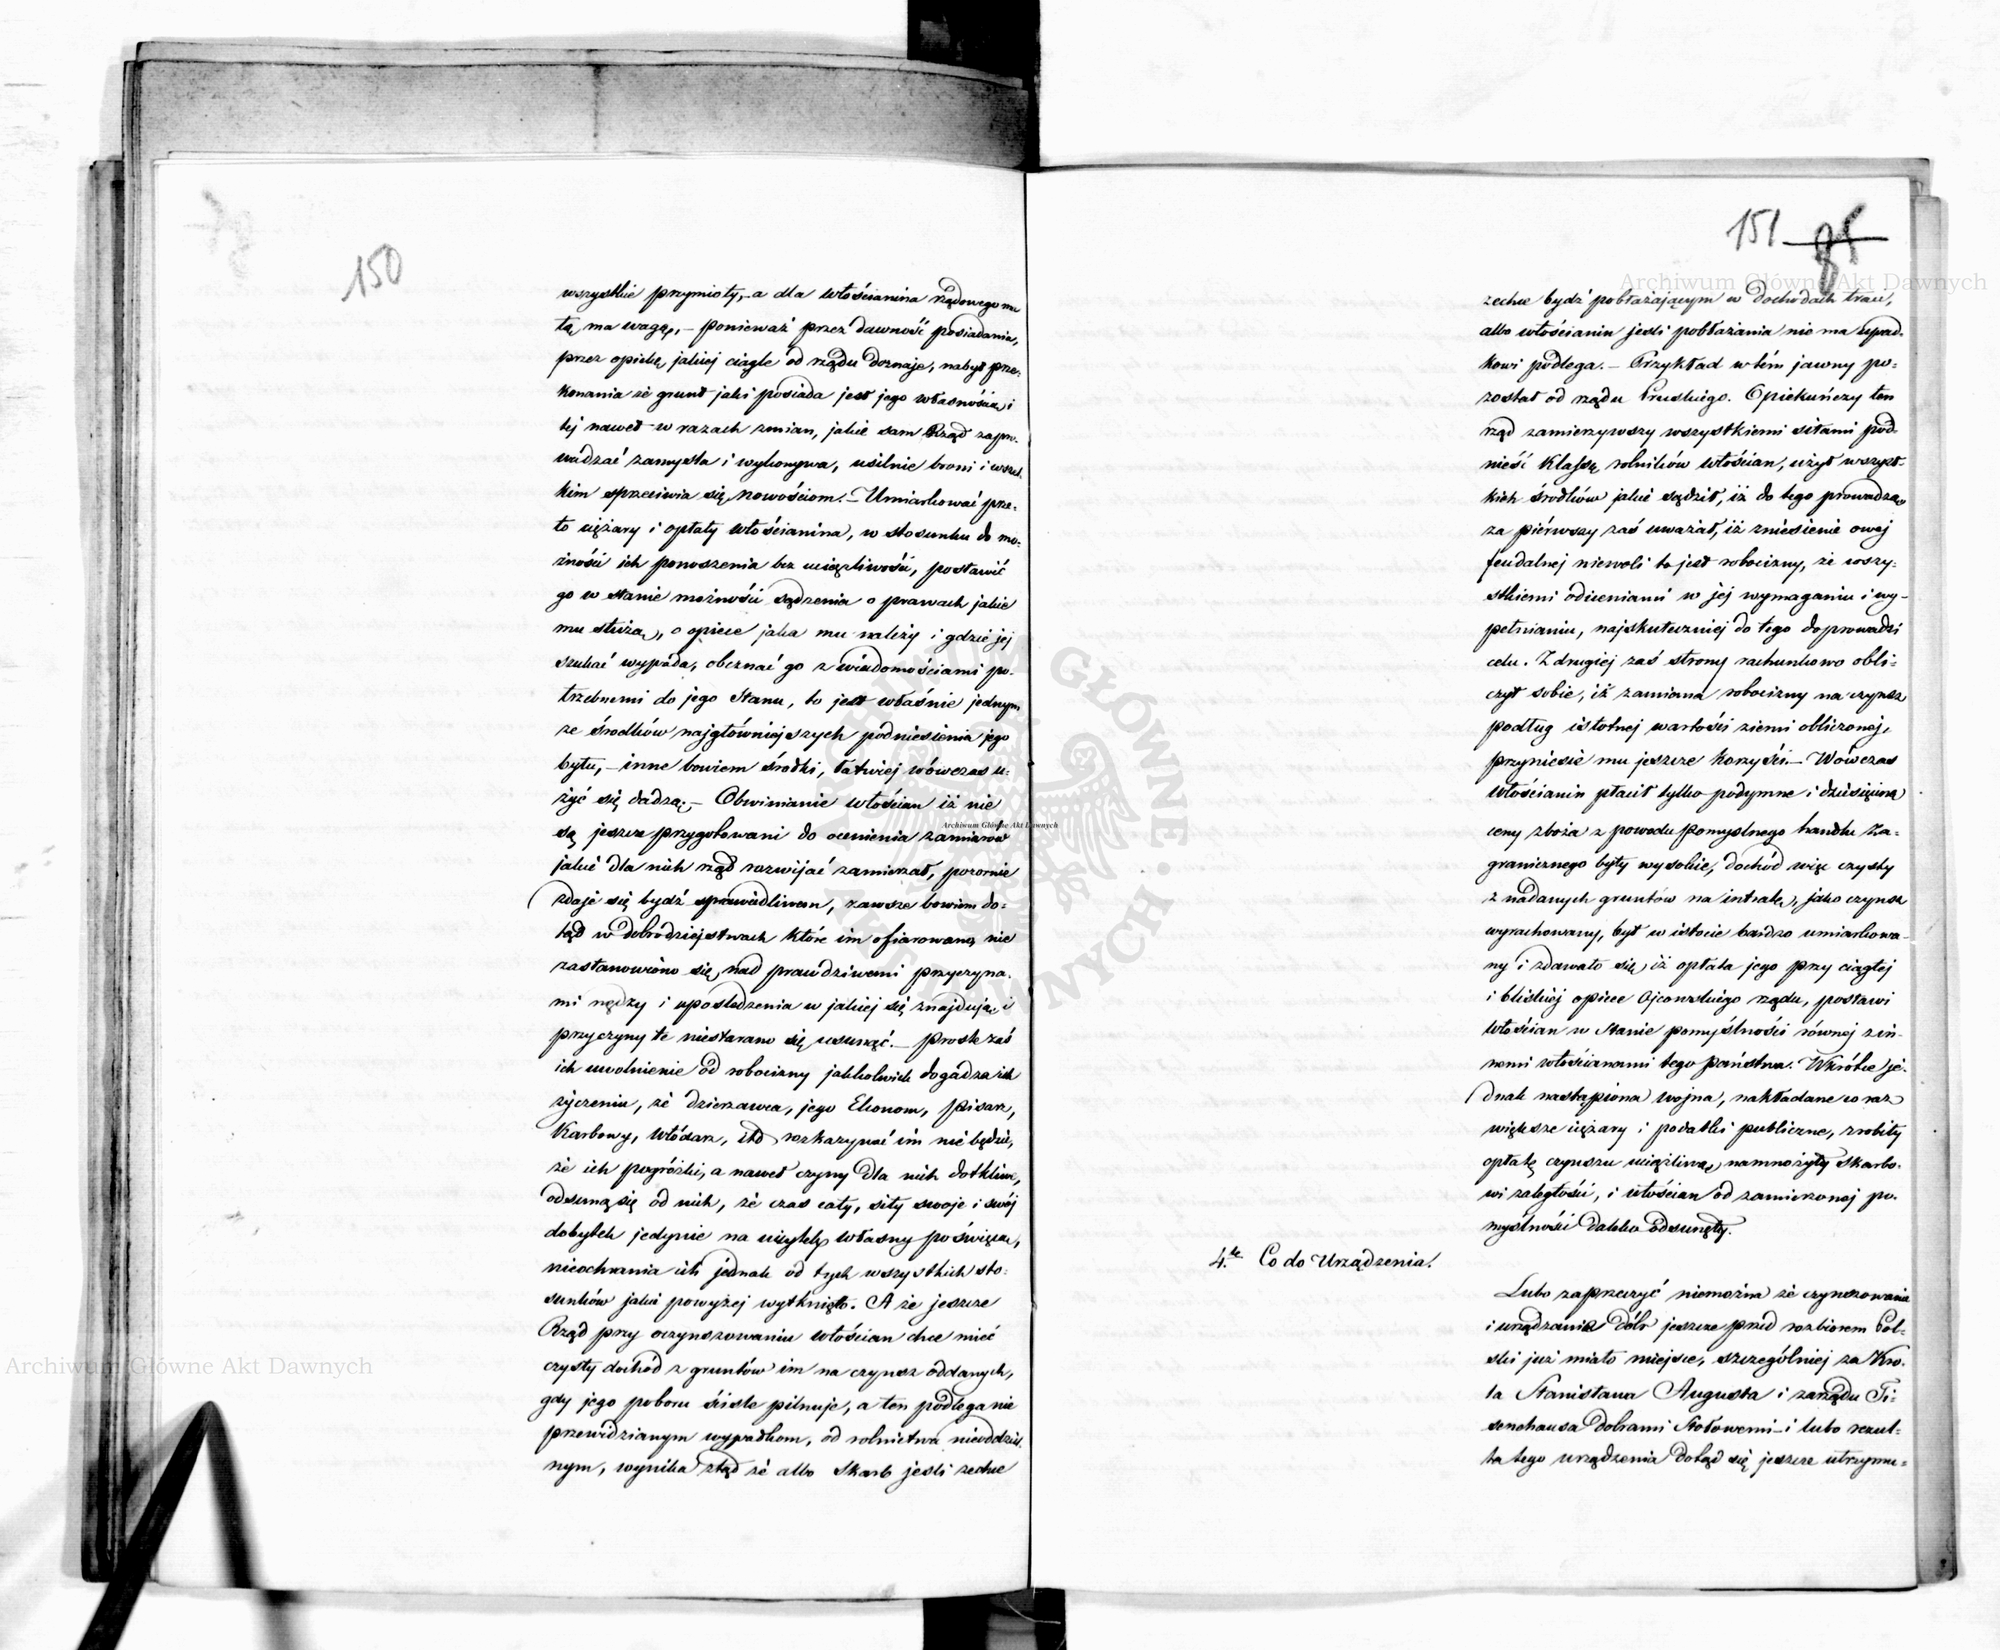 150
wszystkie przymioty, - a dla włościanina rządowego mu
tą ma wagę, - ponieważ przez dawność posiadania,
przez opiekę jakiej ciągle od rządu doznaje, nabył prze-
konania że grunt jaki posiada jest jego własnością i
tej nawet w razach zmian, jakie sam Rząd zapro-
wadzać zamyśla i wykonywa, usilnie broni i wszel-
kim sprzeciwia się nowościom. - Umiarkować prze-
to ciężary i opłaty włościanina, w stosunku do mo-
żności ich ponoszenia bez uciążliwości, postawić
go w stanie możności sądzenia o prawach jakie
mu służą, o opiece jaka mu należy i gdzie jej
szukać wypada, obeznać go z wiadomościami po-
trzebnemi do jego Stanu, to jest właśnie jednym
ze środków najgłówniejszych podniesienia jego
bytu, - inne bowiem środki, łatwiej wówczas u-
żyć się dadzą; - Obwinianie włościan iż nie
są jeszcze przygotowani do ocenienia zamiarów
jakie dla nich rząd rozwijać zamierzał, pozornie
zdaje się bydź sprawiedliwem, zawsze bowiem do-
tąd w dobrodziejstwach które im ofiarowano, nie
zastanowiono się nad prawdziwemi przyczyna-
mi nędzy i upośledzenia w jakiej się znajdują i
przyczyny te niestarano się usunąć. - Proste zaś
ich uwolnienie od robocizny jakkolwiek dogadza ich
życzeniu, że dzierżawca, jego Ekonom, Pisarz,
Karbowy, Włódarz, itd rozkazywać im nie będzie,
że ich pogróżki, a nawet czyny dla nich dotkliwe,
odsuną się od nich, że czas cały, siły swoje i swój
dobytek jedynie na użytek własny poświęcą,
nieochrania ich jednak od tych wszystkich sto-
sunków jakie powyżej wytknięto. A że jeszcze
Rząd przy oczynszowaniu włościan chce mieć
czysty dochód z gruntów im na czynsz oddanych,
gdy jego poboru ściśle pilnuje, a ten podlega nie
przewidzianym wypadkom, od rolnictwa nieoddziel-
nym, wynika ztąd że albo Skarb jeśli zechce
151 85
zechce bydź pobłażającym w dochodach traci,
albo włościanin jeśli pobłażania nie ma upad-
kowi podlega. - Przykład w tém jawny po-
został od rządu Pruskiego. Opiekuńczy ten
rząd zamierzywszy wszystkiemi siłami pod-
nieść Klassę rolników włościan, użył wszyst-
kich środków jakie sądził, iż do tego prowadzą,
za piérwszy zaś uważał, iż zniesienie owej
feudalnej niewoli to jest robocizny, ze wszy-
stkiemi odcieniami w jej wymaganiu i wy-
pełnianiu, najskuteczniej do tego doprowadzi
celu. Z drugiej zaś strony rachunkowo obli-
czył sobie, iż zamiana robocizny na czynsz
podług istotnej wartości ziemi obliczonej,
przyniesie mu jeszcze korzyści. - Wówczas
włościanin płacił tylko podymne i dziesięcinę
ceny zboża z powodu pomyślnego handlu Za-
granicznego były wysokie, dochód więc czysty
z nadanych gruntów na intratę, jako czynsz
wyrachowany, był w istocie bardzo umiarkowa-
ny i zdawało się, iż opłata jego przy ciągłej
i bliskiej opiece Ojcowskiego rządu, postawi
włościan w stanie pomyślności równej z in-
nemi włościanami tego państwa. Wkrótce je-
dnak nastąpiona wojna, nakładane coraz
większe ciężary i podatki publiczne, zrobiły
opłatę czynszu uciążliwą, namnożyły Skarbo-
wi zaległości, i włościan od zamierzonej po-
myślności daleko odsunęły.
4.te Co do Urządzenia.
Lubo zaprzeczyć niemożna że czynszowania
i urządzania Dóbr jeszcze przed rozbiorem Pol-
ski już miało miejsce, szczególniej za Kró-
la Stanisława Augusta i zarządu Ti-
senhausa dobrami Stołowemi - i lubo rezul-
ta tego urządzenia dotąd się jeszcze utrzymu-